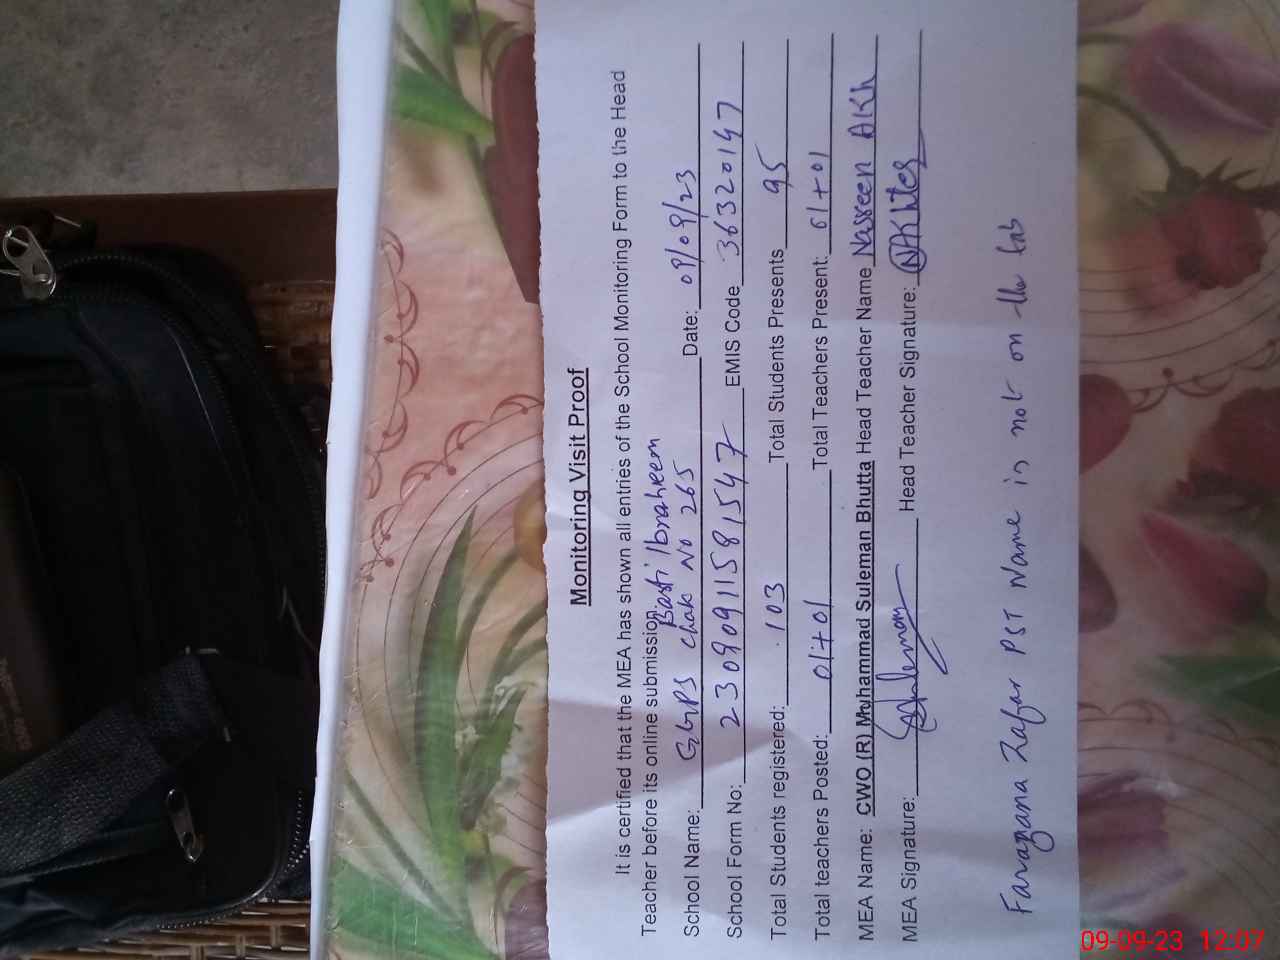 Monitoring Visit Proof
It is certified that the MEA has shown all entries of the School Monitoring Form to the Head
Teacher before its online submission.
Basti Ibraheem
School Name: GGPS Chak No 265 Date: 09/09/23
School Form No: 2309091158 1547 EMIS Code 36320147
Total Students registered: 103 Total Students Presents 95
Total teachers Posted: 01+01 Total Teachers Present: 01+01
MEA Name: CWO (R) Muhammad Suleman Bhutta Head Teacher Name Nasreen AKh
MEA Signature: Head Teacher Signature: NAKhter
Farazana Zafar PST Name is not on the tab
09-09-23 12:07